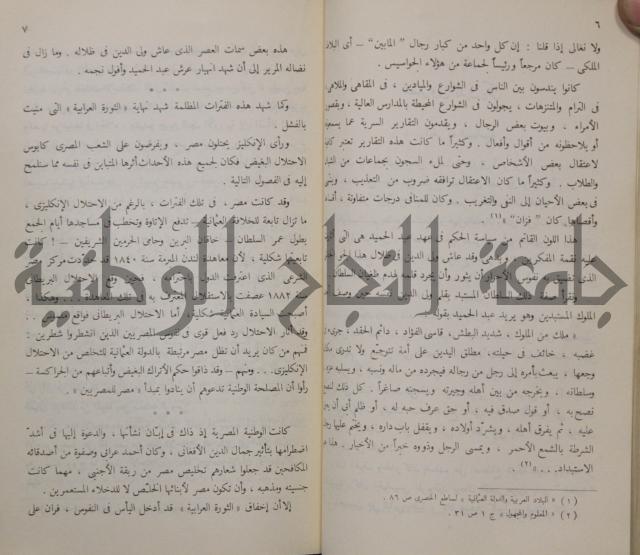 ٦
ولا نغالى إذا قلنا : إن كل واحد من كبار رجال " المابين " – أى البلاط
الملكى – كان مرجعاً ورئيساً لجماعة من هؤلاء الجواسيس .
كانوا يندسون بين الناس فى الشوارع والميادين ، فى المقاهى والملاهى
فى الترام والمتنزهات ، يجولون فى الشوارع المحيطة بالمدارس العالية ، وبقصور
الأمراء ، وبيوت بعض الرجال ، ويقدمون التقارير السرية عما يسمعون
أو يلاحظونه من أقوال وأفعال . وكثيراً ما كانت هذه التقارير تعتبر
لاعتقال بعض الأشخاص ، وحتى لملء السجون بجماعات من
والطلاب . وكثيراً ما كان الاعتقال ترافقه ضروب من التعذيب ،
فى بعض الأحيان إلى النفى والتغريب . وكان للمنافى درجات متفاوتة ،
وأقصاها كان " فزان " (١) .
هذا اللون القاتم من سياسة الحكم فى عهد عبد الحميد هى التى
عليه نقمة المفكرين وقد عاش ولى الدين فى ظلال هذا
الذى نفوس الأحرار أن يثور وأن يجرد قلمه
صفة ذلك السلطان المستبد بقلم ولى الدين نفسه حين وصف
الملوك المستبدين وهو يريد عبد الحميد بقوله :
« ملك من الملوك ، شديد البطش ، قاسى الفؤاد ، دائم الحقد ، جرىء
غضبه ، خائف فى حيلته . مطلق اليدين على أمة تتوجع ولا تدرى
وجعها ، يبعث بأمره إلى رجل من رجاله فيجرده من ماله ونسبه ، ويسلبه
وسلطانه ، ويخرجه من بين أهله وجيرته ويسجنه صاغراً . كل ذلك
نصح به ، أو قول صدق فيه ، أو حق عرف حبه له ، أو ظلم أبى أن
عليه . ثم يفرق أهله ، ويشرّد أولاده ، ويقفل باب داره ، ويختم عليها
الشرطة بالشمع الأحمر ، ويمسى الرجل وذووه خبراً من الأخبار . هذا
الاستبداد . . . » (٢) .
(١) « البلاد العربية والدولة العثمانية » لساطع الحصرى ص ٨٦ .
(٢) « المعلوم والمجهول » ج ١ ص ٣١ .
٧
هذه بعض سمات العصر الذى عاش ولى الدين فى ظلاله . وما زال فى
نضاله المرير إلى أن شهد انهيار عرش عبد الحميد وأفول نجمه .
* * *
وكما شهد هذه الفترات المظلمة شهد نهاية « الثورة العرابية » التى منيت
بالفشل .
ورأى الإنكليز يحتلون مصر ، ويفرضون على الشعب المصرى كابوس
الاحتلال البغيض فكان لجميع هذه الأحداث أثرها المتباين فى نفسه مما سنلمح
إليه فى الفصول التالية .
وقد كانت مصر ، فى تلك الفترات ، بالرغم من الاحتلال الإنكليزى ،
ما تزال تابعة للخلافة العثمانية – تدفع الإتاوة وتخطب فى مساجدها أيام الجمع
بطول عمر السلطان خاقان البرين وحامى الحرمين الشريفين – ! كانت
تابعيتها شكلية ، لأن معاهدة لندن المبرمة سنة ١٨٤٠ قد حددت مركز مصر
الشرعى الذى اعترفت الدول باحترامه . فحين وقع الاحتلال البريطانى
١٨٨٢ عصفت بالاستقلال المعترف به فى تلك المعاهدة . . . وهكذا
أصبحت السيادة العثمانية شكلية ، أما الاحتلال البريطانى فواقع
وقد أثار الاحتلال رد فعل قوى فى نفوس المصريين الذين انشطروا شطرين :
فمنهم من كان يريد أن تظل مصر مرتبطة بالدولة العثمانية للتخلص من الاحتلال
الإنكليزى . . . ومنهم – وقد ذاقوا حكم الأتراك البغيض وأتباعهم من الجراكسة –
رأوا أن المصلحة الوطنية تدعوهم أن ينادوا بمبدأ « مصر للمصريين » .
* * *
كانت الوطنية المصرية إذ ذاك فى إبّان نشأتها ، والدعوة إليها فى أشدّ
اضطرامها بتأثير جمال الدين الأفغانى ، وكان أحمد عرابى وصفوة من أصدقائه
المكافحين قد جعلوا شعارهم تخليص مصر من ربقة الأجنبى ، مهما كانت
جنسيته ومذهبه ، وأن تكون مصر لأبنائها الخلّص لا للدخلاء المستعمرين .
إلا أن إخفاق « الثورة العرابية » قد أدخل اليأس فى النفوس ، فران على
جامعة النجاح الوطنية